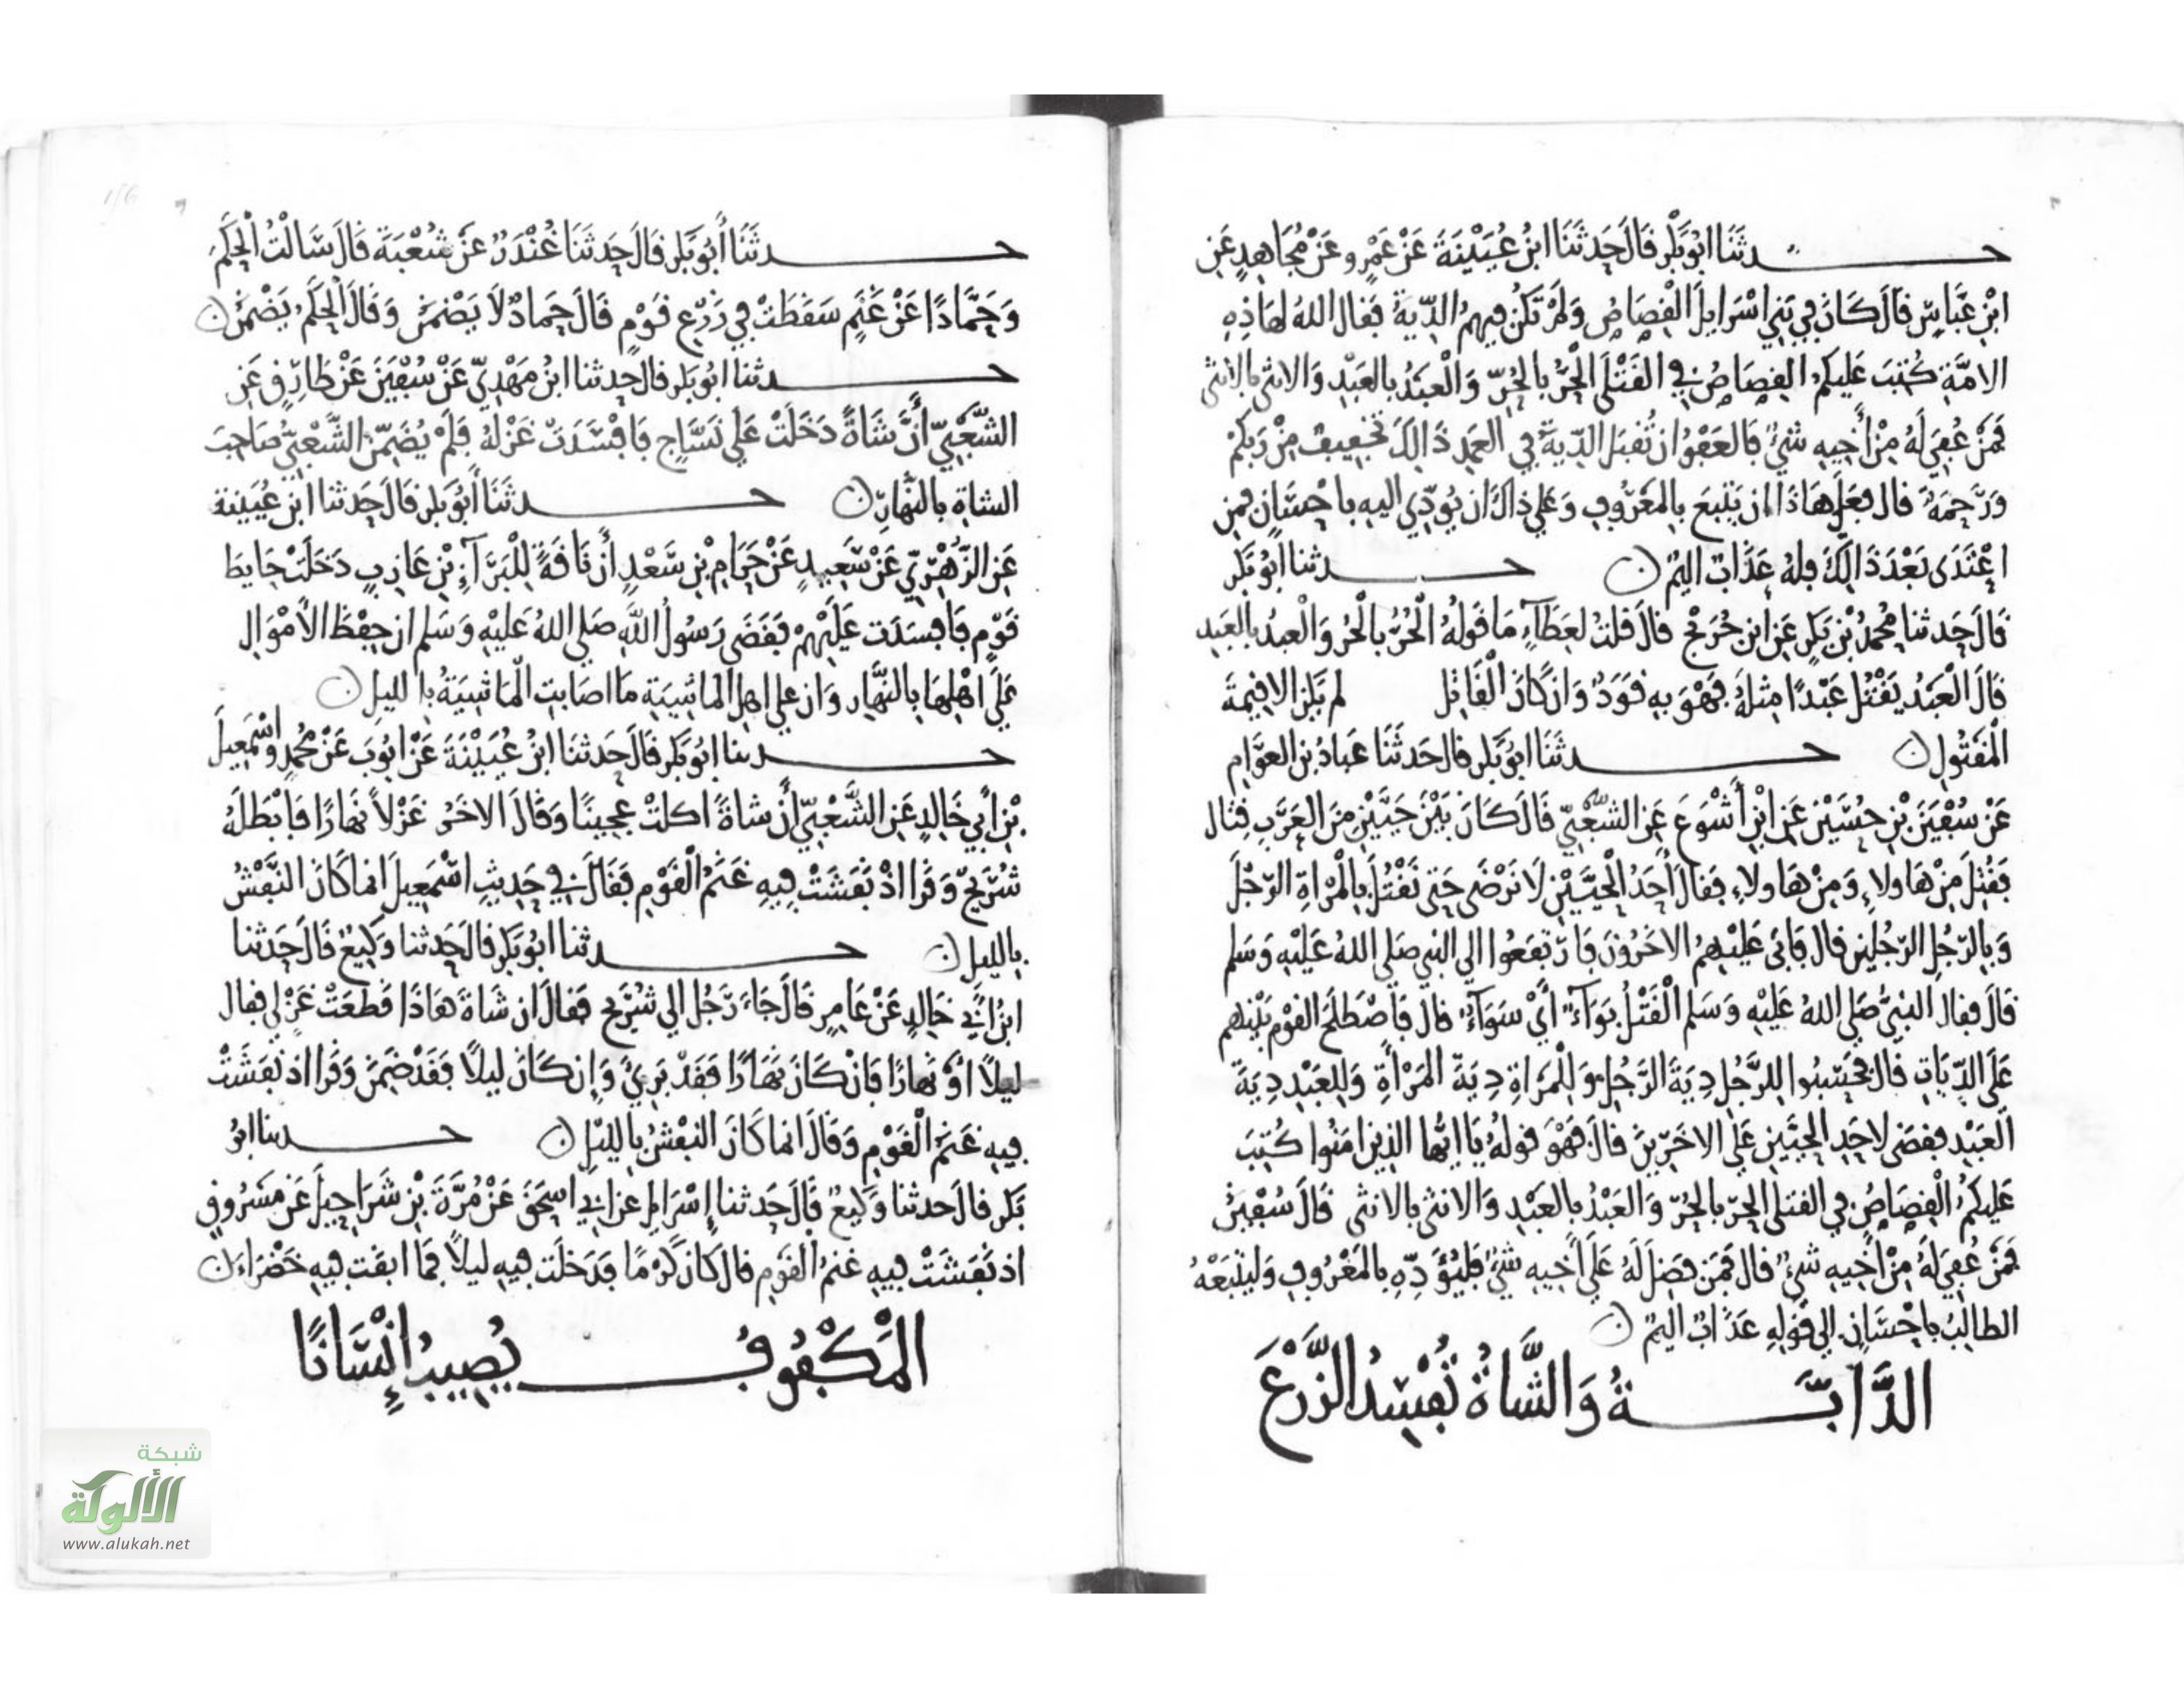 حدثنا ابو بكر قال حدثنا ابن عيينة عن عمرو عن مجاهد عن
ابن عباس قال كان في بني اسرايل القصاص ولم تكن فيهم الدية فقال الله لهاذه
الامة كتب عليكم القصاص في القتلى الحر بالحر والعبد بالعبد والانثى بالانثى
فمن عفي له من أخيه شيء فالعفو ان تقبل الدية في العمد ذالك تخفيف من ربكم
ورحمة قال فعلى هاذا ان يتبع بالمعروف وعلى ذاك ان يودي اليه باحسان فمن
اعتدى بعد ذالك فله عذاب اليم ن حدثنا ابو بكر
قال حدثنا محمد بن بكر عن ابن جريج قال قلت لعطاء ما قوله الحر بالحر والعبد بالعبد
قال العبد يقتل عبدا مثله فهو به قود وان كان القاتل لم يكن الا قيمة
المقتول ن حدثنا ابو بكر قال حدثنا عباد بن العوام
عن سفين بن حسين عن ابن أشوع عن الشعبي قال كان بين حيين من العرب قتال
فقتل من هاولاء ومن هاولاء فقال أحد الحيين لا نرضى حتى نقتل بالمراة الرجل
وبالرجل الرجلين قال فابى عليهم الاخرون فارتفعوا الى النبي صلى الله عليه وسلم
قال فقال النبي صلى الله عليه وسلم القتل بواء أي سواء قال فاصطلح القوم بينهم
على الديات قال فحسبوا للرجل دية الرجل وللمراة دية المرأة وللعبد دية
العبد فقضى لاحد الحيين على الاخرين قال فهو قوله يا ايها الذين امنوا كتب
عليكم القصاص في القتلى الحر بالحر والعبد بالعبد والانثى بالانثى قال سفين
فمن عفي له من أخيه شيء قال فمن فضل له على أخيه شيء فليؤده بالمعروف وليتبعه
الطالب باحسان الى قوله عذاب اليم ن
الدابة والشاة تفسد الزرع
حدثنا أبو بكر قال حدثنا غندر عن شعبة قال سالت الحكم
وحمادا عن غنم سقطت في زرع قوم قال حماد لا يضمن وقال الحكم يضمن ن
حدثنا ابو بكر قال حدثنا ابن مهدي عن سفين عن طارق عن
الشعبي أن شاة دخلت على نساج فافسدت غزله فلم يضمن الشعبي صاحب
الشاة بالنهار ن حدثنا أبو بكر قال حدثنا ابن عيينة
عن الزهري عن سعيد عن حرام بن سعد أن ناقة للبراء بن عازب دخلت حايط
قوم فافسدت عليهم فقضى رسول الله صلى الله عليه وسلم ان حفظ الاموال
على اهلها بالنهار وان على اهل الماشية ما اصابت الماشية بالليل ن
حدثنا ابو بكر قال حدثنا ابن عيينة عن ايوب عن محمد واسمعيل
بن أبي خالد عن الشعبي أن شاة اكلت عجينا وقال الاخر غزلا نهارا فابطله
شريح وقرا اذ نفشت فيه غنم القوم فقال في حديث اسمعيل انما كان النفش
بالليل ن حدثنا ابو بكر قال حدثنا وكيع قال حدثنا
ابن أبي خالد عن عامر قال جاء رجل الى شريح فقال ان شاة هاذا قطعت غزلي فقال
ليلا او نهارا فان كان نهارا فقد بري وإن كان ليلا فقد ضمن وقرا اذ نفشت
فيه غنم القوم وقال انما كان النفش بالليل ن حدثنا ابو
بكر قال حدثنا وكيع قال حدثنا إسرايل عن ابي اسحق عن مرة بن شراحيل عن مسروق
اذ نفشت فيه غنم القوم قال كان كرما فدخلت فيه ليلا فما ابقت فيه خضراء ن
المكفوف يصيب إنسانا
شبكة
الألوكة
www.alukah.net